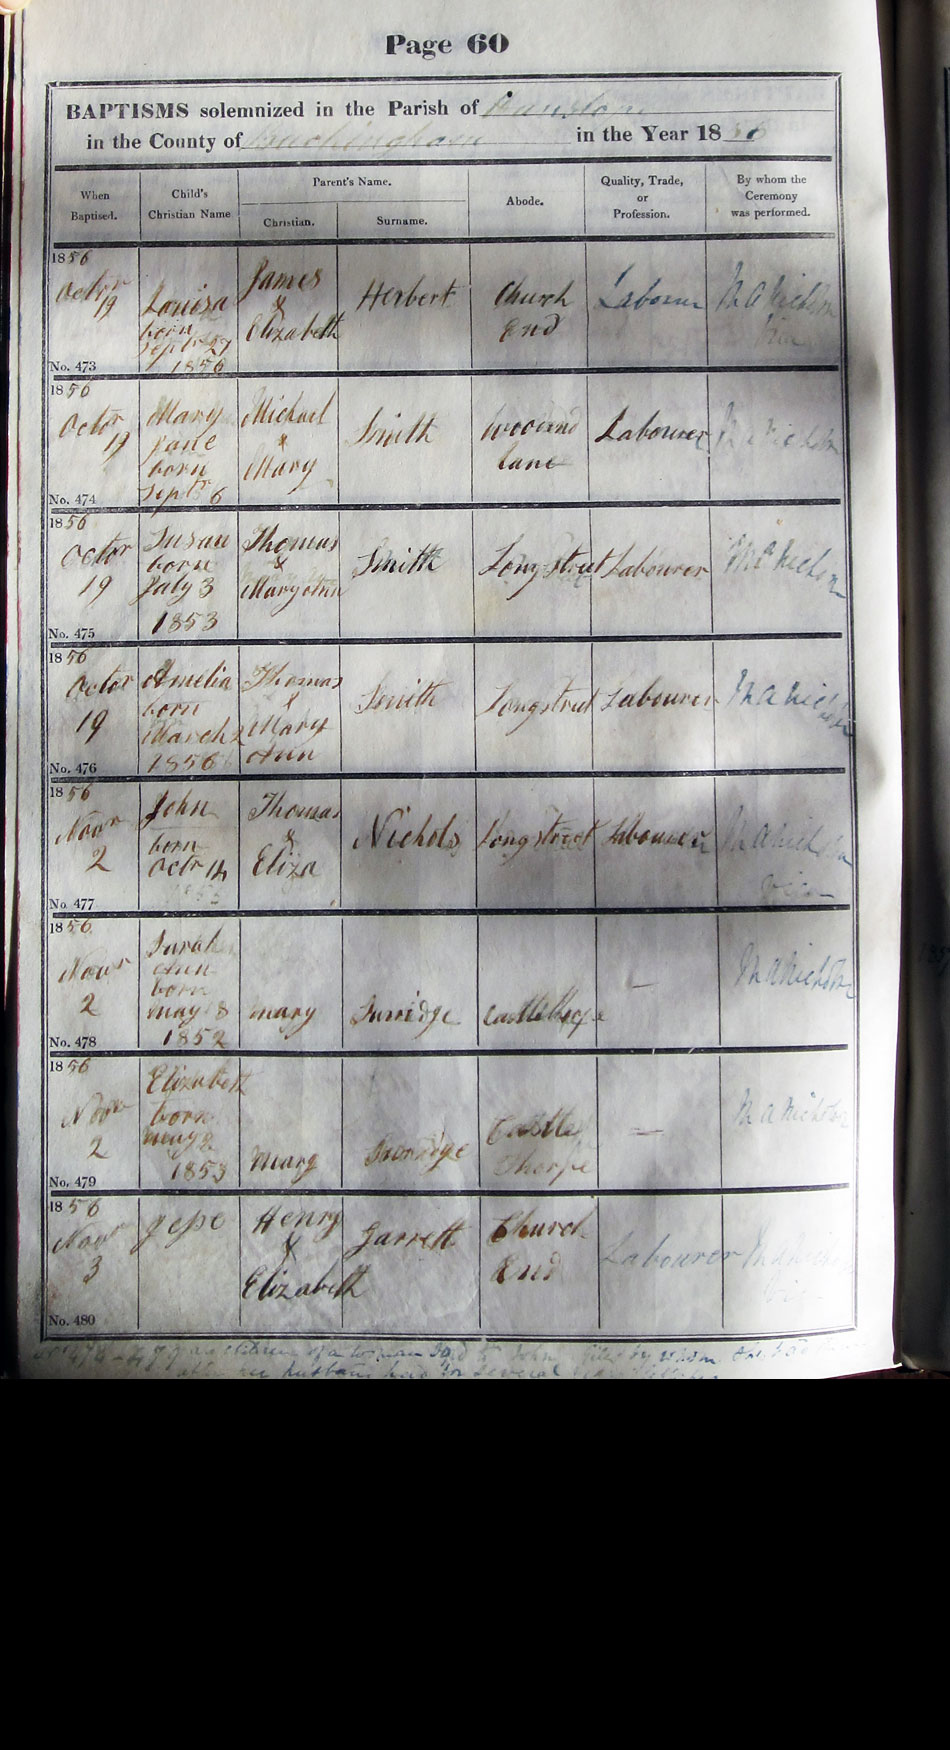 Page 60
BAPTISMS solemnized in the Parish of Hanslope
in the County of Buckingham in the Year 1856
When Baptised.
Child's Christian Name
Parent's Name.
Christian.
Surname.
Abode.
Quality, Trade, or Profession.
By whom the Ceremony was performed.
1856
Octor 19
No. 473
Louisa
born
Septr 27
1856
James
&
Elizabeth
Herbert
Church
End
Labourer
M A Nicholson
Vicar
1856
Octor 19
No. 474
Mary
Jane
born
Septr 6
Michael
&
Mary
Smith
Woodend
lane
Labourer
M A Nicholson
1856
Octor
19
No. 475
Susan
born
July 3
1853
Thomas
&
Mary Ann
Smith
Longstreet
Labourer
M A Nicholson
1856
Octor
19
No. 476
Amelia
born
March 2
1856
Thomas
&
Mary
Ann
Smith
Longstreet
Labourer
M A Nicholson
1856
Novr
2
No. 477
John
born
Octr 14
Thomas
&
Eliza
Nichols
Longstreet
Labourer
M A Nicholson
Vicar
1856
Novr
2
No. 478
Sarah
Ann
born
may 8
1852
Mary
Surridge
Castlethorpe
—
M A Nicholson
1856
Novr
2
No. 479
Elizabeth
born
may 2
1853
Mary
Surridge
Castle
Thorpe
—
M A Nicholson
1856
Novr
3
No. 480
Jesse
Henry
&
Elizabeth
Garrett
Church
End
Labourer
M A Nicholson
Vicar
are children of a woman to John by whom
husband has for several